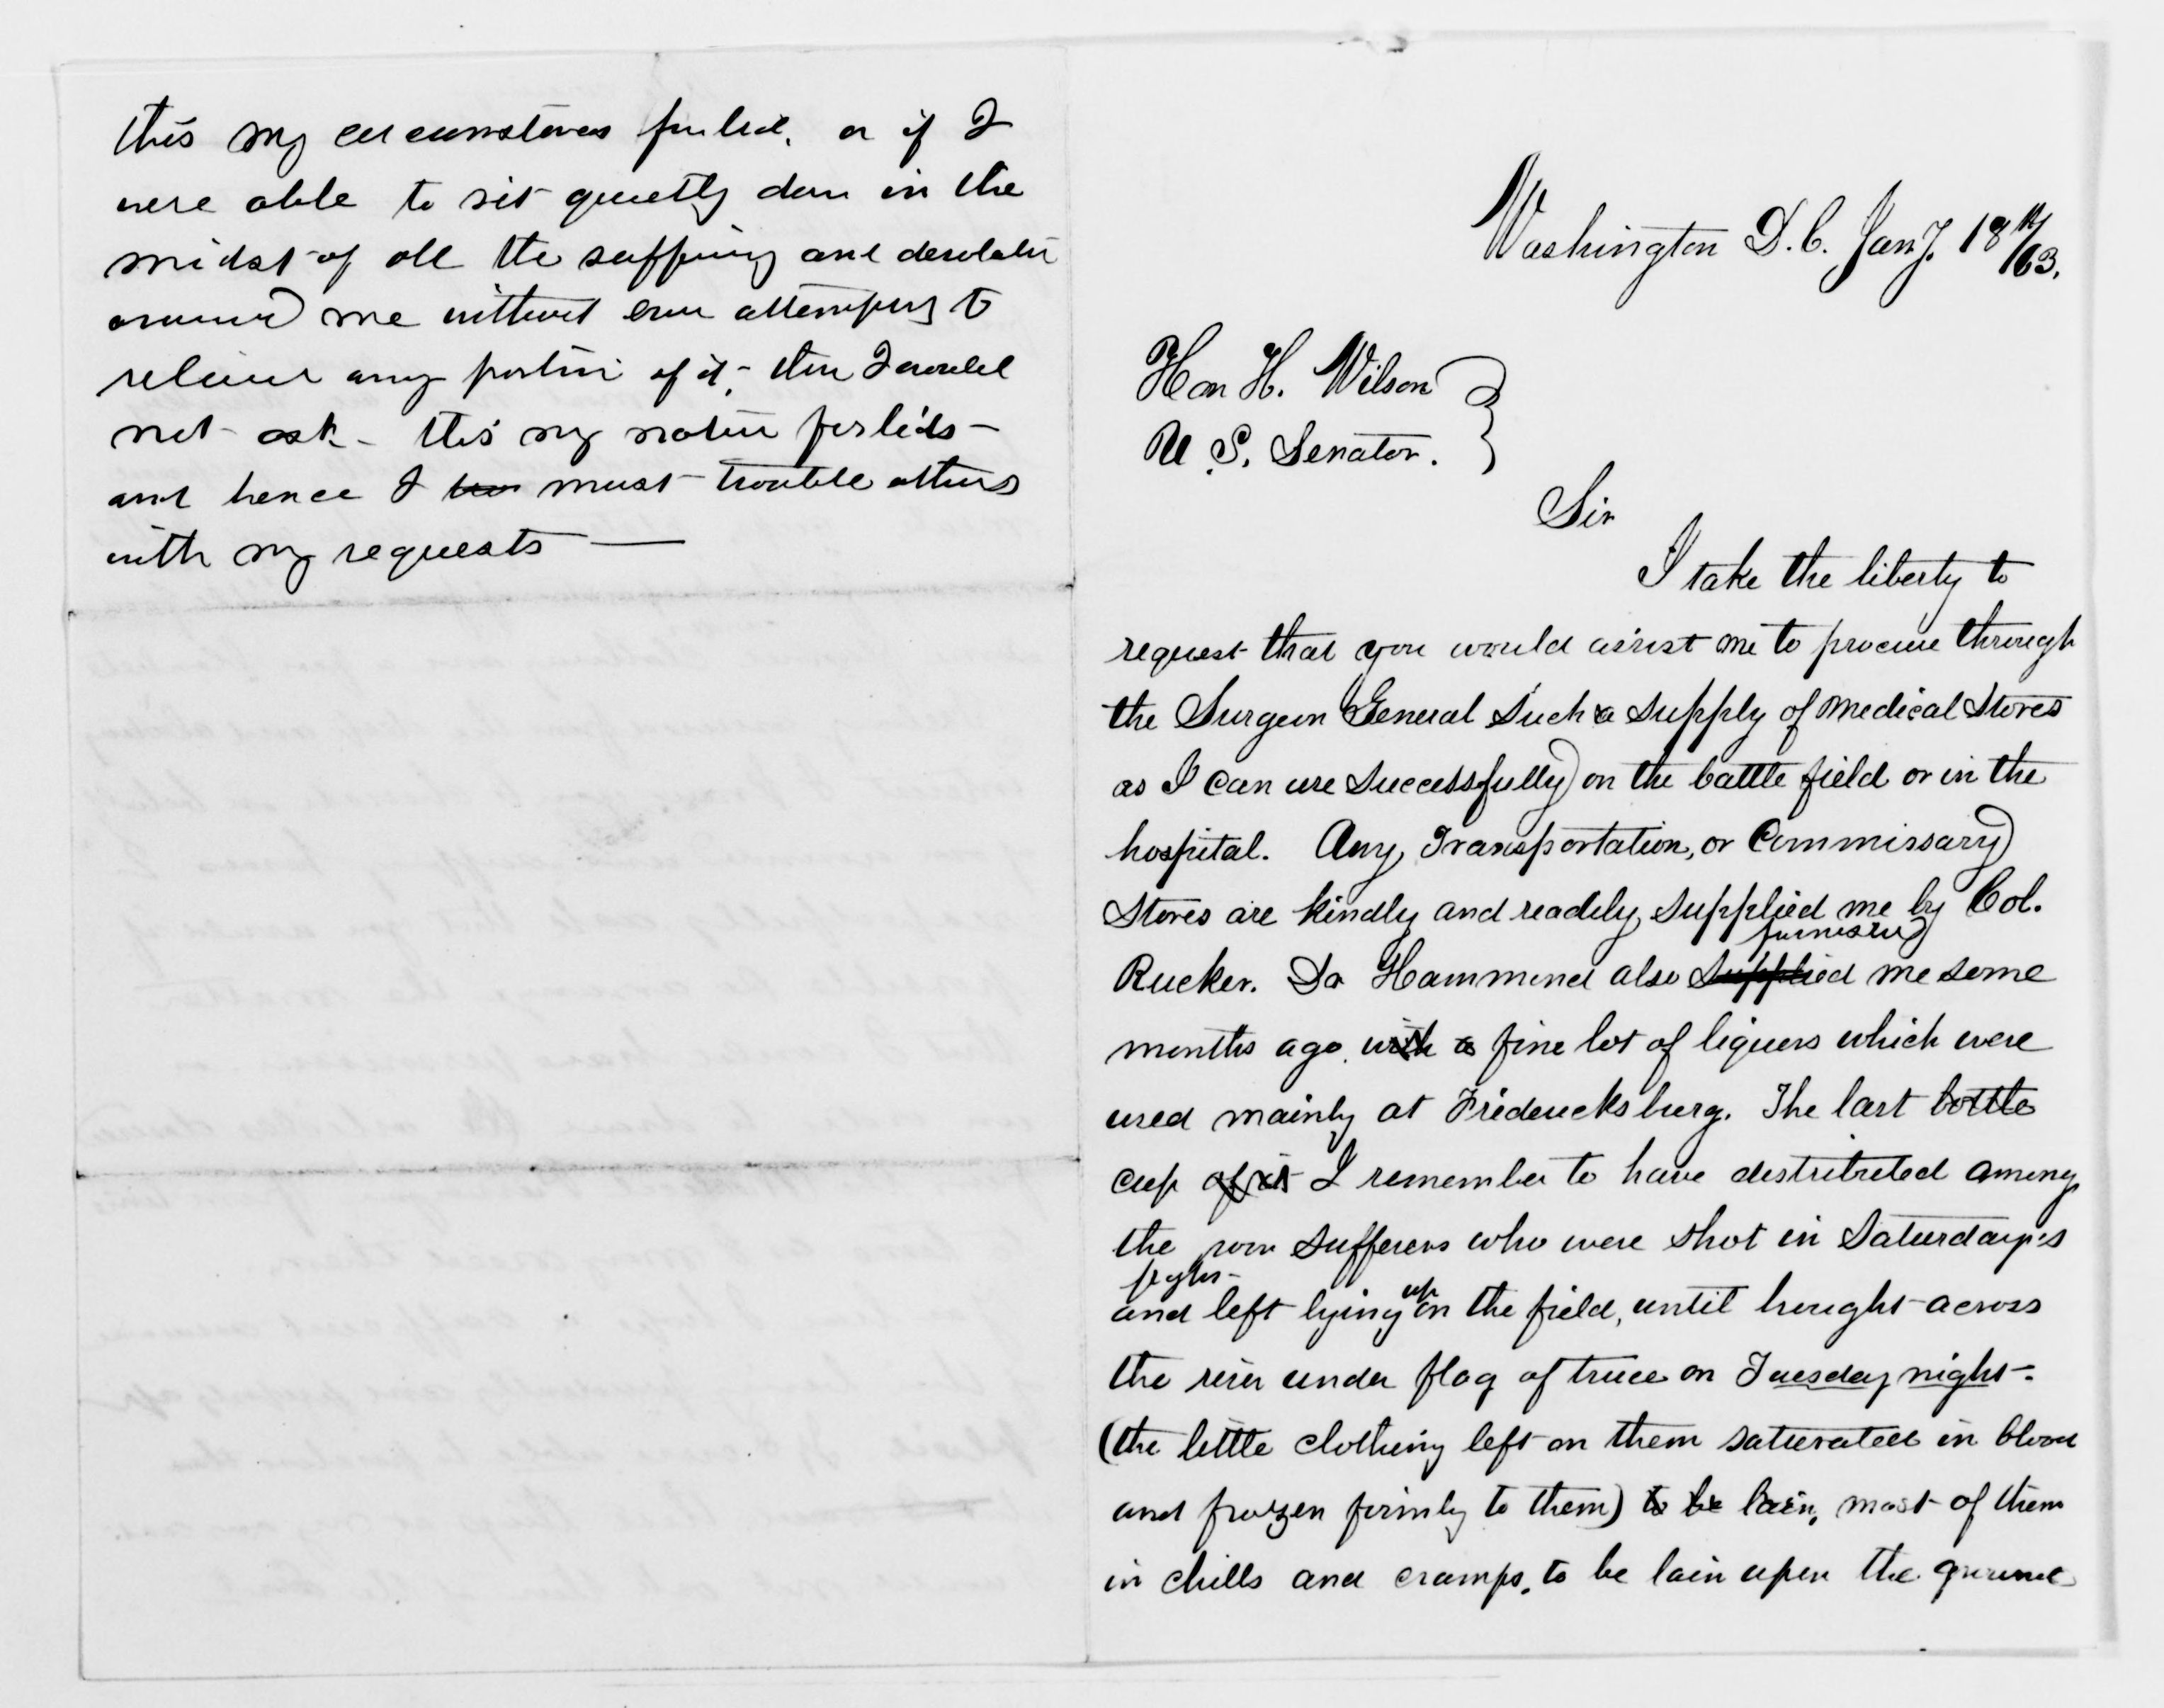 this my circumstances forbid, or if I
were able to sit quietly down in the
midst of all the suffering and desolation
around me without even attempting to
relieve any portion of it, then I would
not ask - this my nature forbids -
and hence I must trouble others
with my requests —
Washington D.C. Jany. 18th/63.
Hon H. Wilson
U.S. Senator.
Sir
I take the liberty to
request that you would assist me to procure through
the Surgeon General such a supply of medical stores
as I can use successfully on the battle field or in the
hospital. Any Transportation, or Commissary
Stores are kindly and readily supplied me by Col.
furnished
Rucker. Dr Hammond also supplied me some
months ago with a fine lot of liquors which were
used mainly at Fredericksburg. The last bottle
cup of it I remember to have distributed among
the poor sufferers who were shot in Saturday's
fight
and left lying upon the field, until brought across
the river under flag of truce on Tuesday night -
(the little clothing left on them saturated in blood
and frozen firmly to them) to be lain, most of them
in chills and cramps, to be lain upon the ground